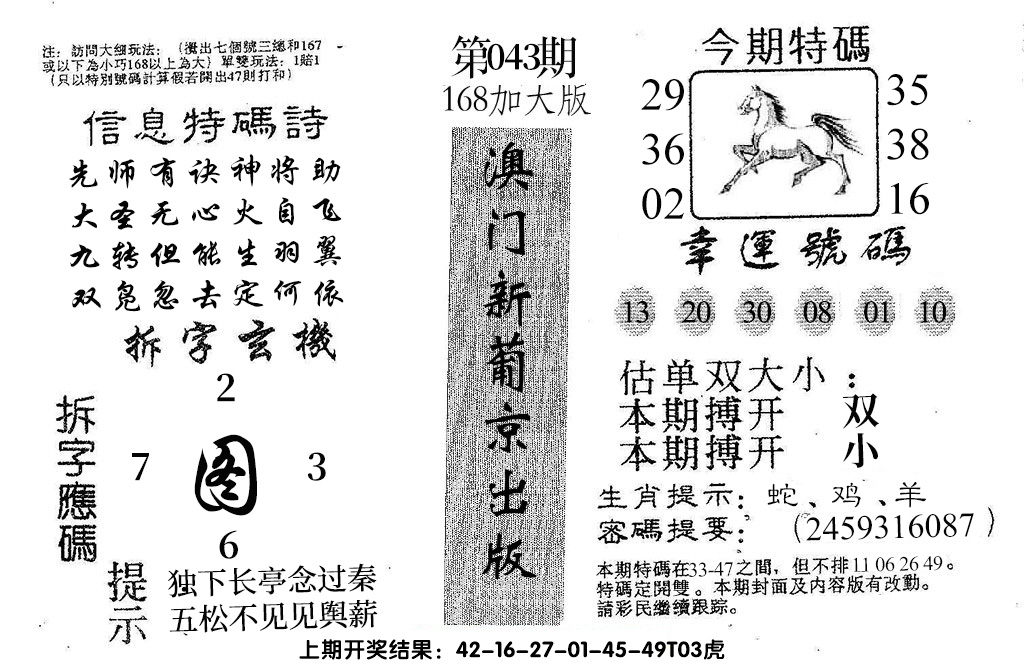 注：訪問大细玩法：（攪出七個號三總和167
或以下為小巧168以上為大）單雙玩法：1賠1
（只以特別號碼計算假若開出47則打和）
信息特碼詩
先师有诀神将助
大圣无心火自飞
九转但能生羽翼
双凫忽去定何依
拆字玄機
拆字應碼
2
7 图 3
6
提示
独下长亭念过秦
五松不见见舆薪
第043期
168加大版
澳门新葡京出版
今期特碼
29 35
36 38
02 16
幸運號碼
13 20 30 08 01 10
估单双大小：
本期搏开 双
本期搏开 小
生肖提示：蛇、鸡、羊
密碼提要：（2459316087）
本期特碼在33-47之間，但不排11 06 26 49。
特碼定開雙。本期封面及内容版有改動。
請彩民繼續跟踪。
上期开奖结果：42-16-27-01-45-49T03虎